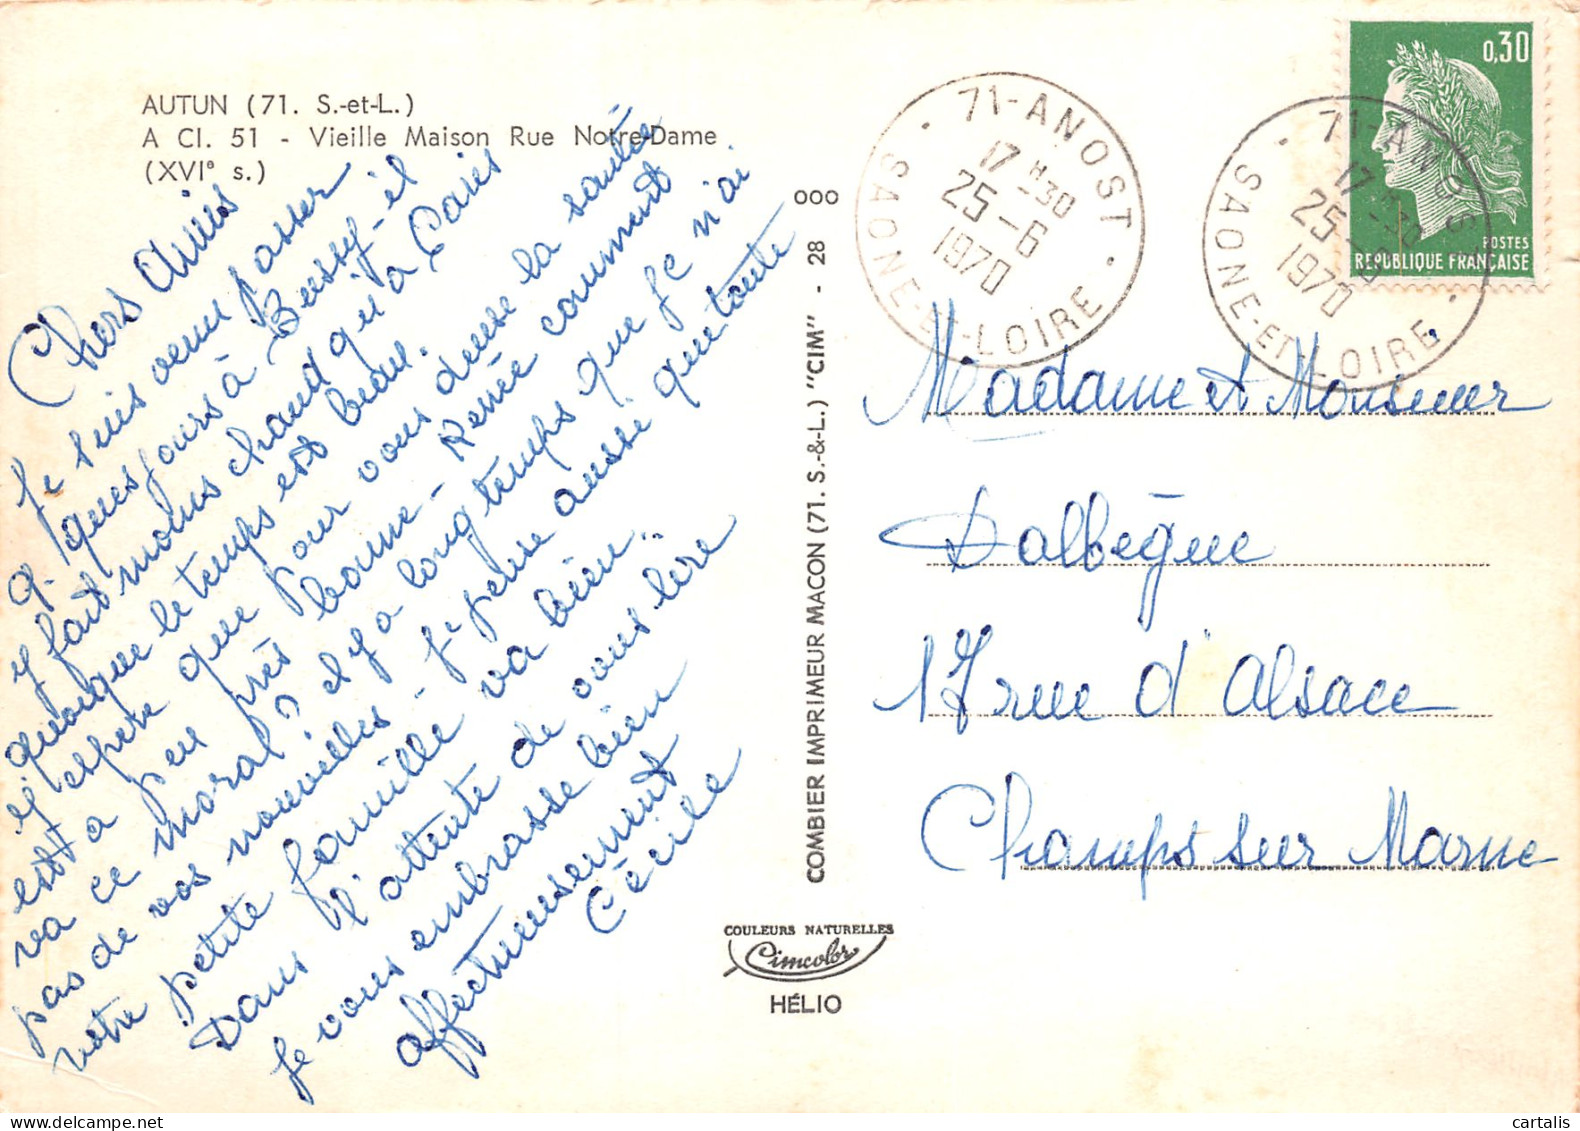 AUTUN (71. S.-et-L.)
A Cl. 51 - Vieille Maison Rue Notre-Dame
(XVIe s.)
Chers Amis
Je suis venu passer
q. ques jours à Bussy - il
y fait moins chaud qu'à Paris
quoique le temps est beau.
J'espère que pour vous deux la santé
est à peu près bonne - Renée comment
va ce moral ? il y a longtemps que je n'ai
pas de vos nouvelles - je pense aussi que toute
votre petite famille va bien.
Dans l'attente de vous lire
je vous embrasse bien
affectueusement
Cécile
COMBIER IMPRIMEUR MACON (71. S.-&-L.) "CIM" - 28 000
COULEURS NATURELLES
Cimcolor
HÉLIO
71-ANOST
17 H 30
25-6
1970
SAONE-ET-LOIRE
71-ANOST
17 H 30
25-6
1970
SAONE-ET-LOIRE
0,30
POSTES
REPUBLIQUE FRANÇAISE
Madame et Monsieur
Dalbègue
17 rue d'Alsace
Champs sur Marne
cartalis